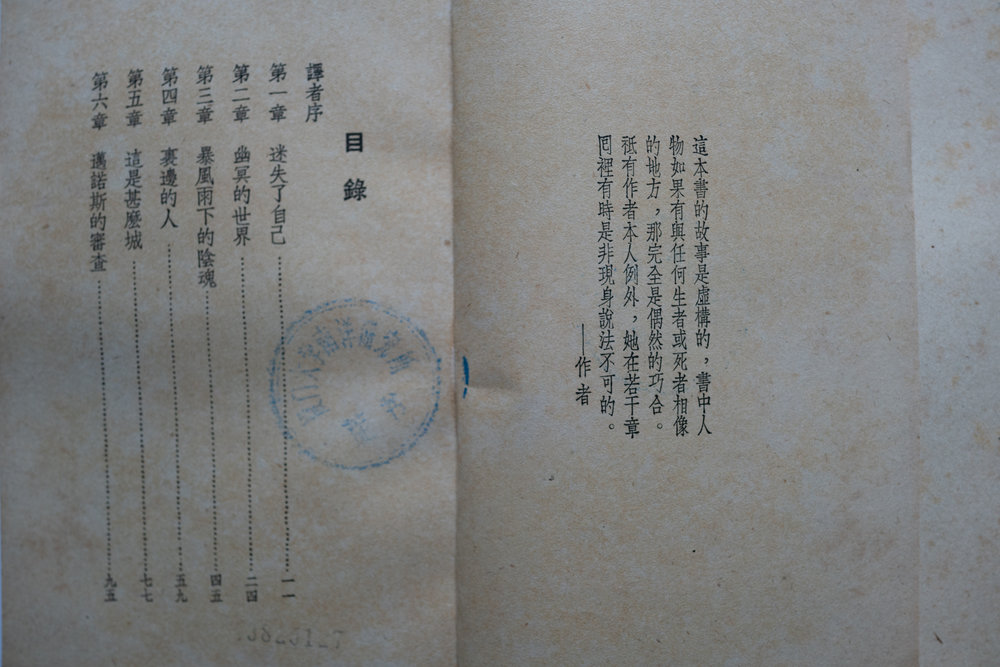 這本書的故事是虛構的，書中人
物如果有與任何生者或死者相像
的地方，那完全是偶然的巧合。
祗有作者本人例外，她在若干章
囘裡有時是非現身說法不可的。
——作者
目錄
譯者序
第一章 迷失了自己…………一一
第二章 幽冥的世界…………二四
第三章 暴風雨下的陰魂…………四五
第四章 裏邊的人…………五九
第五章 這是甚麼城…………七七
第六章 邁諾斯的審查…………九五